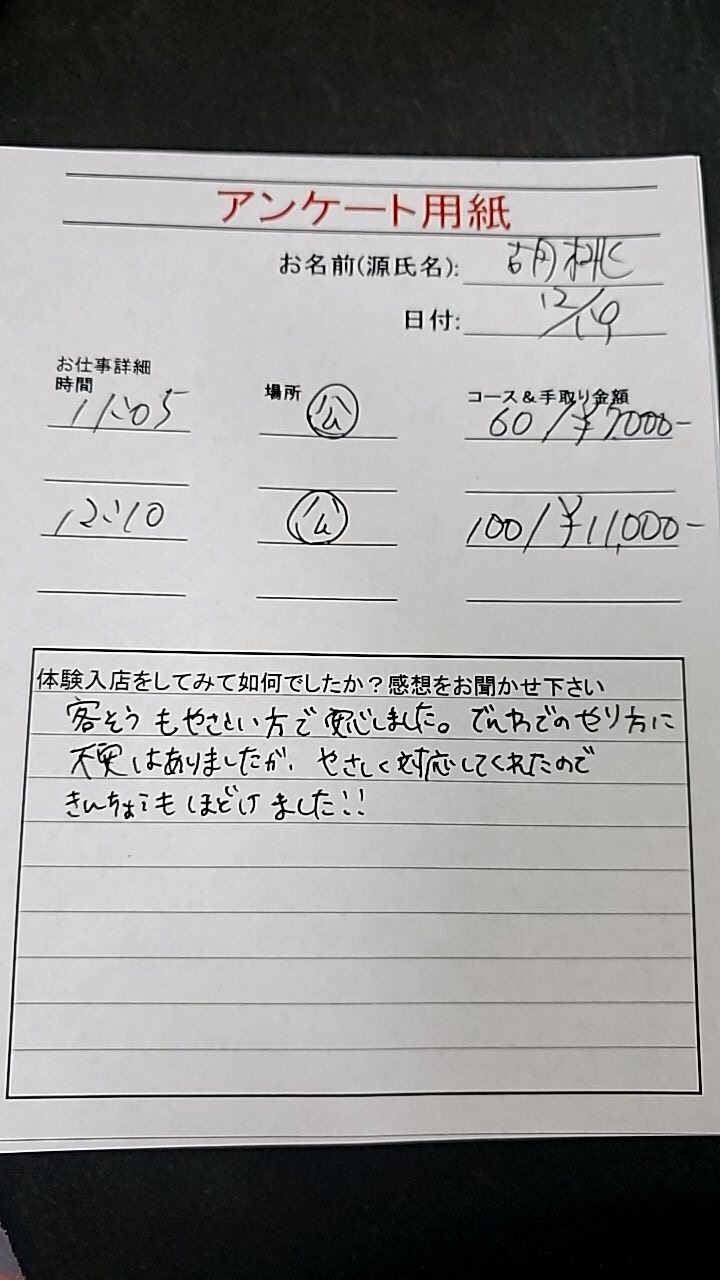 アンケート用紙
お名前(源氏名): 胡桃
日付: 12/19
お仕事詳細
時間 場所 コース&手取り金額
11:05 公 60/¥7,000-
12:10 公 100/¥11,000-
体験入店をしてみて如何でしたか?感想をお聞かせ下さい
客そうもやさしい方で安心しました。でんわでのやり方に
不安はありましたが、やさしく対応してくれたので
きんちょうもほどけました!!